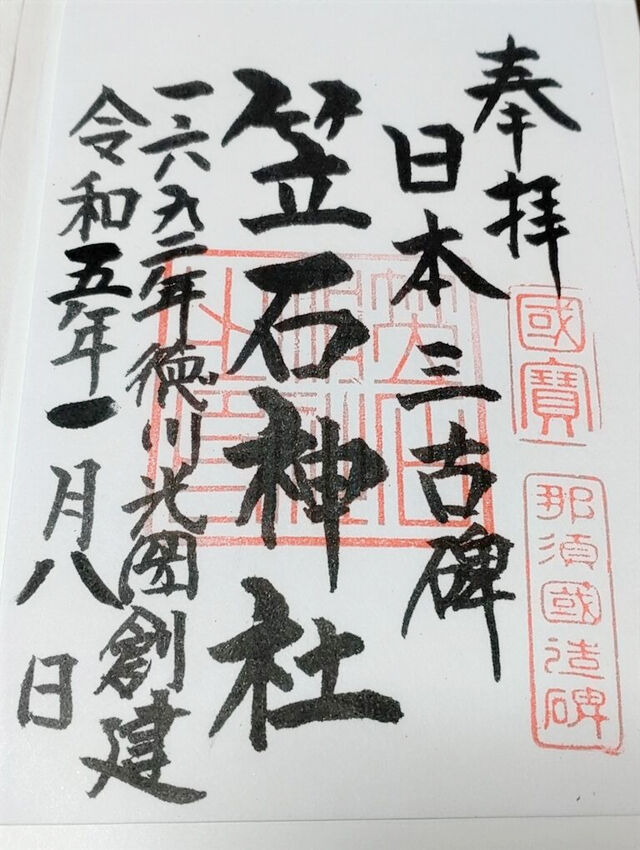 奉拝
國寶
那須國造碑
日本三古碑
笠石神社
一六九二年徳川光圀創建
令和五年一月八日